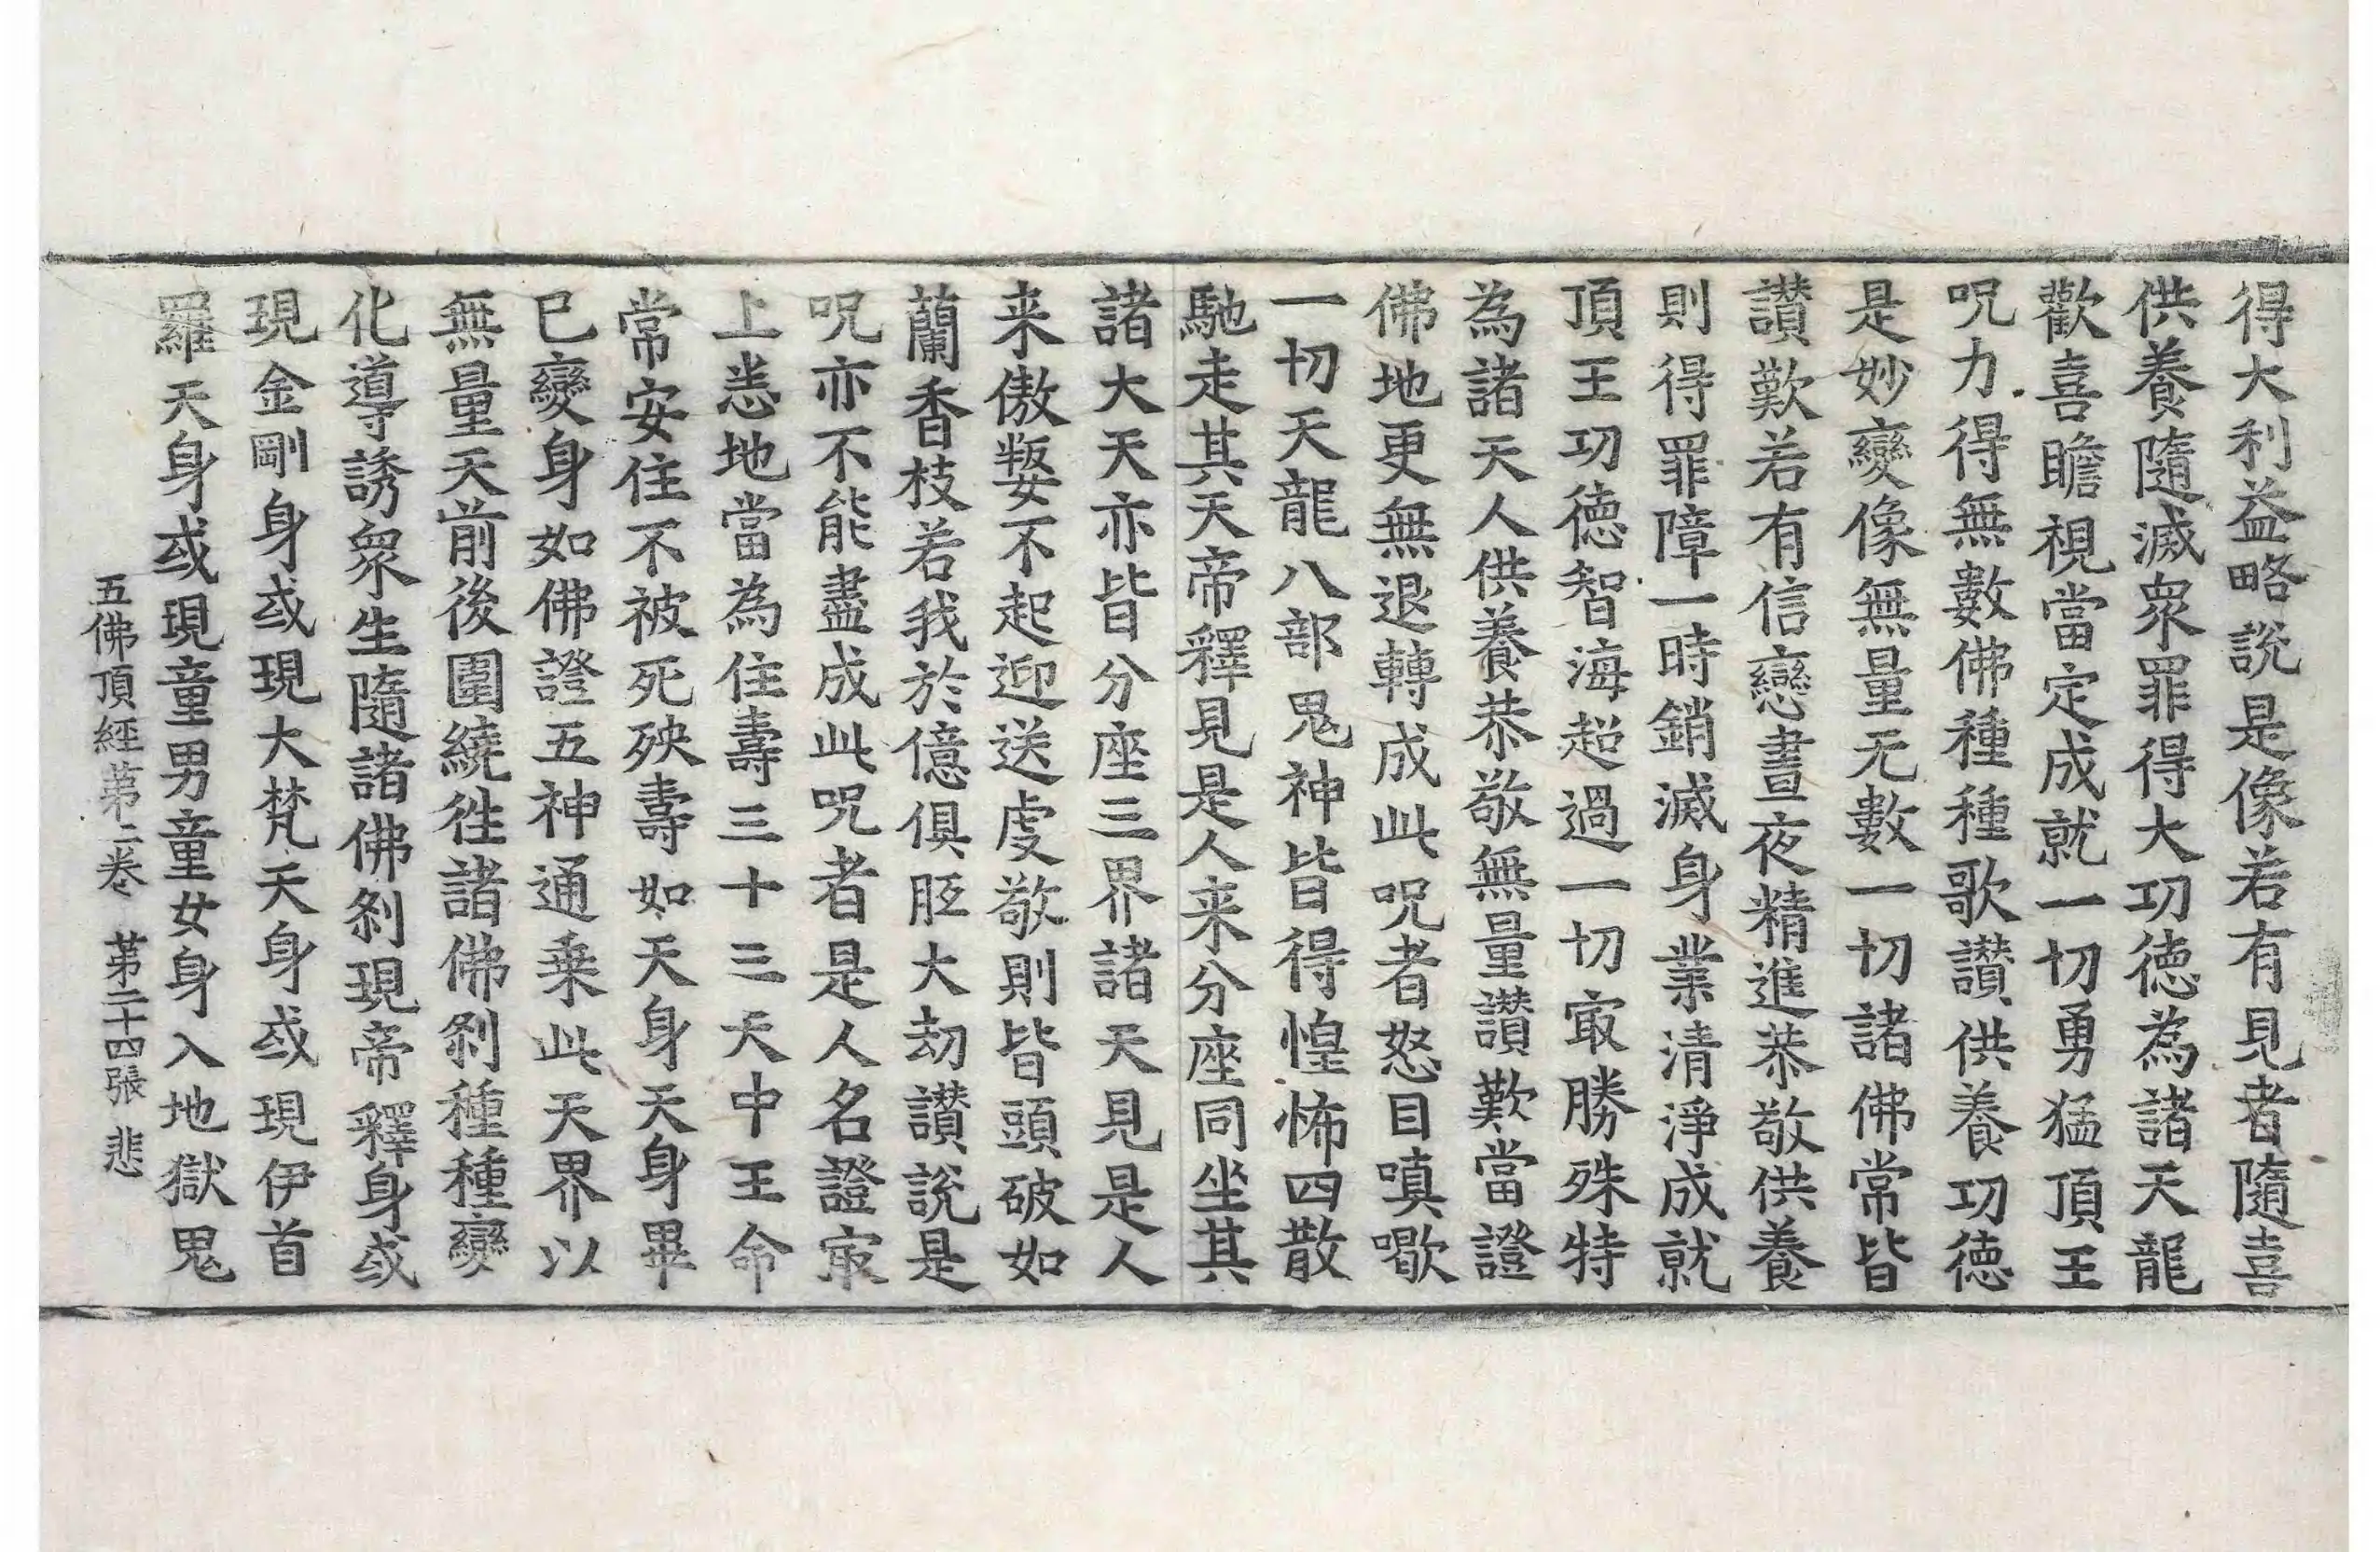 得大利益略說是像若有見者隨喜
供養隨滅衆罪得大功德為諸天龍
歡喜瞻視當定成就一切勇猛頂王
呪力得無數佛種種歌讃供養功德
是妙變像無量无數一切諸佛常皆
讃歎若有信戀晝夜精進恭敬供養
則得罪障一時銷滅身業清淨成就
頂王功德智海超過一切㝡勝殊特
為諸天人供養恭敬無量讃歎當證
佛地更無退轉成此呪者怒目嗔歇
一切天龍八部鬼神皆得惶怖四散
馳走其天帝釋見是人来分座同坐其
諸大天亦皆分座三界諸天見是人
来傲媻不起迎送虔敬則皆頭破如
蘭香枝若我於億俱胝大劫讃說是
呪亦不能盡成此呪者是人名證㝡
上悉地當為住壽三十三天中王命
常安住不被死殃壽如天身天身畢
已變身如佛證五神通乗此天界以
無量天前後圍繞徃諸佛刹種種變
化導誘衆生隨諸佛刹現帝釋身或
現金剛身或現大梵天身或現伊首
羅天身或現童男童女身入地獄鬼
五佛頂經第二卷 第二十四張 悲